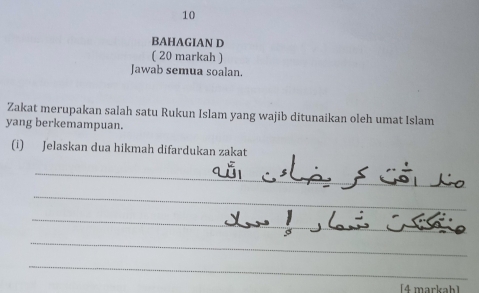 10
BAHAGIAN D
( 20 markah )
Jawab semua soalan.
Zakat merupakan salah satu Rukun Islam yang wajib ditunaikan oleh umat Islam
yang berkemampuan.
(i) Jelaskan dua hikmah difardukan zakat
كريضاءن الله
شعار إسلا
[4 markah]